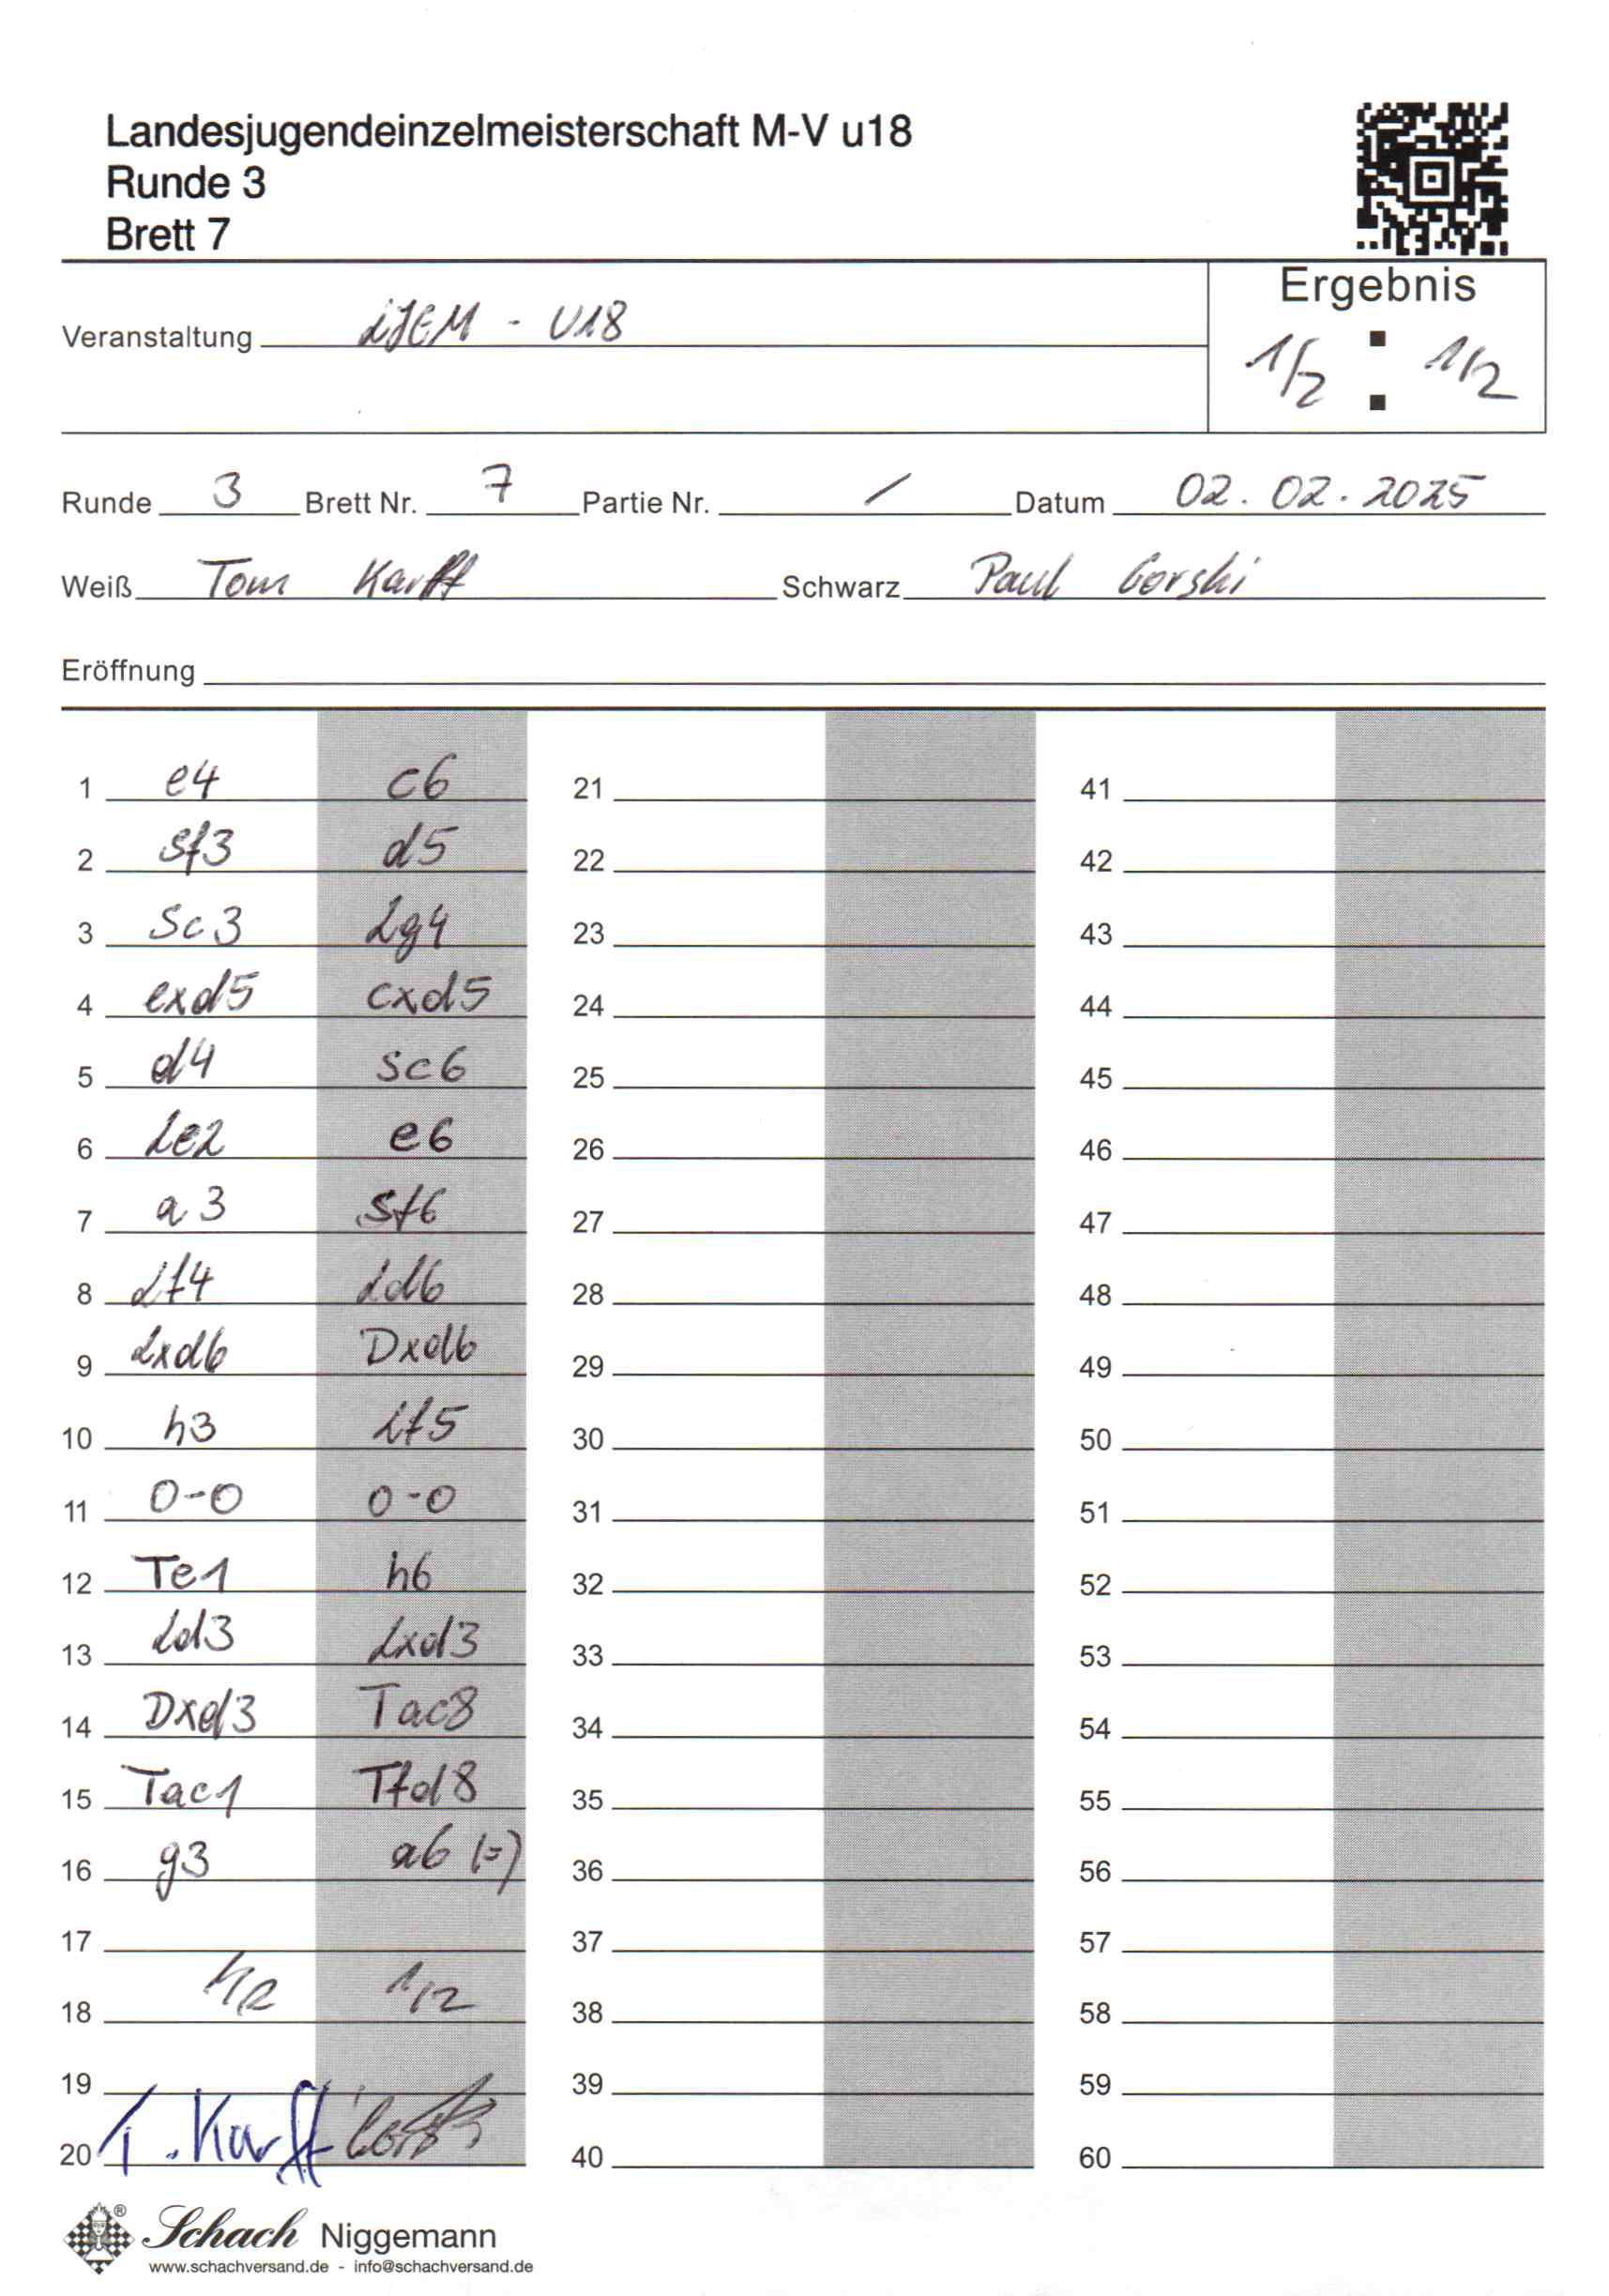 Landesjugendeinzelmeisterschaft M-V u18
Runde 3
Brett 7
Ergebnis
Veranstaltung LJEM - U18
1/2 : 1/2
Runde 3 Brett Nr. 7 Partie Nr. / Datum 02.02.2025
Weiß Tom Karff Schwarz Paul Gorski
Eröffnung
1 e4 c6 21 41
2 Sf3 d5 22 42
3 Sc3 Lg4 23 43
4 exd5 cxd5 24 44
5 d4 Sc6 25 45
6 Le2 e6 26 46
7 a3 Sf6 27 47
8 Lf4 Ld6 28 48
9 Lxd6 Dxd6 29 49
10 h3 Lf5 30 50
11 0-0 0-0 31 51
12 Te1 h6 32 52
13 Ld3 Lxd3 33 53
14 Dxd3 Tac8 34 54
15 Tac1 Tfd8 35 55
16 g3 a6 (=) 36 56
17 37 57
18 1/2 1/2 38 58
19 39 59
20 T. Karff Gorski 40 60
Schach Niggemann
www.schachversand.de - info@schachversand.de